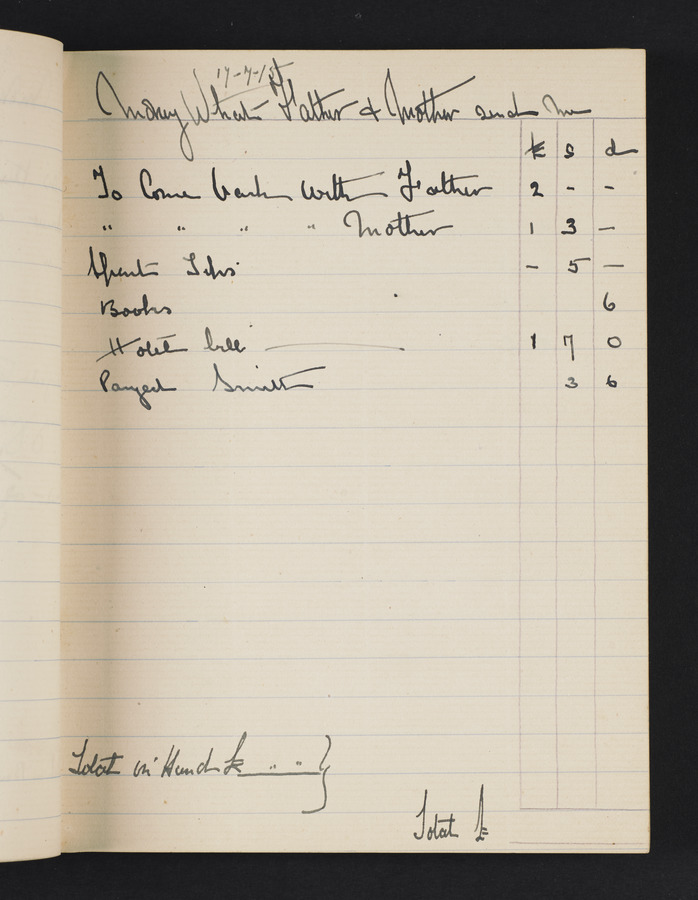 17-7-15
Money What Father & Mother send Me
£ s d
To Come back with Father 2 - -
" " " " Mother 1 3 -
Spent Tips - 5 -
Books 6
Hotel bill 1 7 0
Payed Smith 3 6
Total in Hand £ " "
Total £